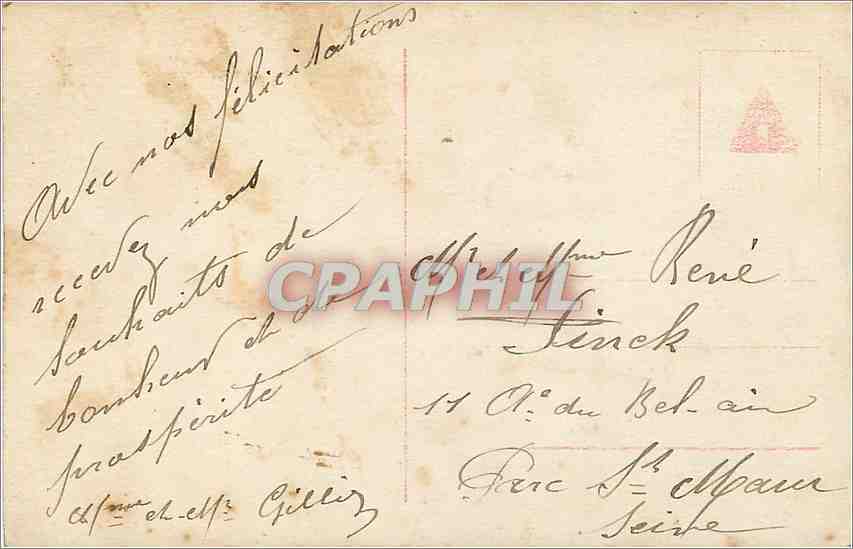 Avec nos félicitations
recevez nos
souhaits de
bonheur et de
prospérité
Mme et Mr
Mr et Mme René
Finck
11 Ae du Bel-air
Parc St Maur
Seine
CPAPHIL